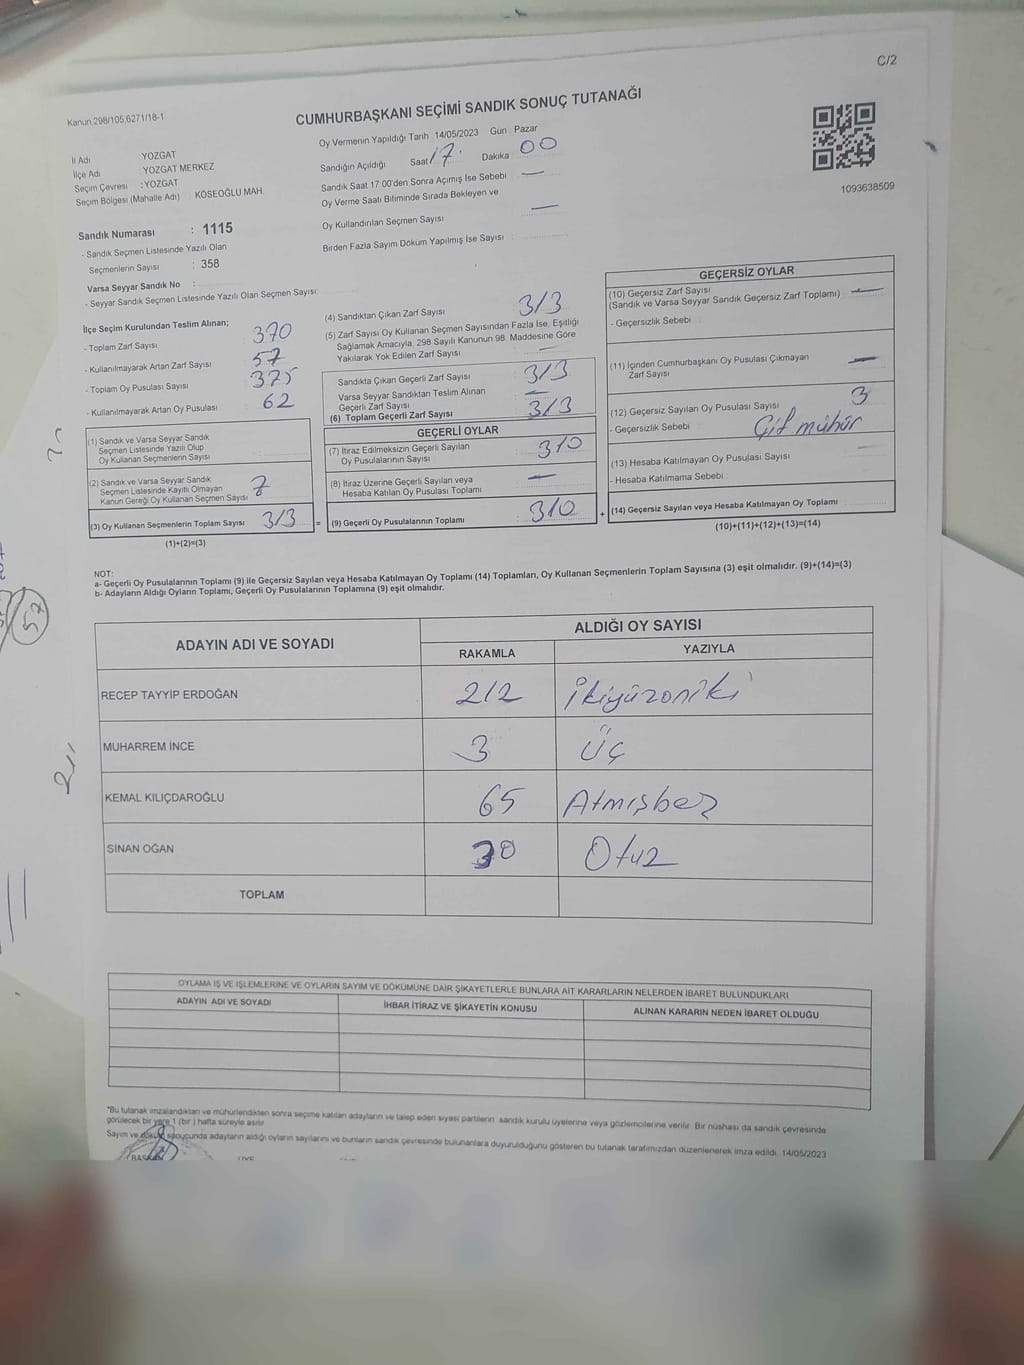 C/2
Kanun:298/105,6271/18-1
CUMHURBAŞKANI SEÇİMİ SANDIK SONUÇ TUTANAĞI
İl Adı YOZGAT
İlçe Adı YOZGAT MERKEZ
Seçim Çevresi :YOZGAT
Seçim Bölgesi (Mahalle Adı) KÖSEOĞLU MAH.
Sandık Numarası : 1115
- Sandık Seçmen Listesinde Yazılı Olan
Seçmenlerin Sayısı : 358
Varsa Seyyar Sandık No :
- Seyyar Sandık Seçmen Listesinde Yazılı Olan Seçmen Sayısı:
Oy Vermenin Yapıldığı Tarih 14/05/2023 Gün : Pazar
Sandığın Açıldığı Saat 17 Dakika 00
Sandık Saat 17:00'den Sonra Açımış İse Sebebi —
Oy Verme Saati Bitiminde Sırada Bekleyen ve
Oy Kullandırılan Seçmen Sayısı —
Birden Fazla Sayım Döküm Yapılmış İse Sayısı :
1093638509
İlçe Seçim Kurulundan Teslim Alınan;
- Toplam Zarf Sayısı 370
- Kullanılmayarak Artan Zarf Sayısı 57
- Toplam Oy Pusulası Sayısı 375
- Kullanılmayarak Artan Oy Pusulası 62
(1) Sandık ve Varsa Seyyar Sandık
Seçmen Listesinde Yazılı Olup
Oy Kullanan Seçmenlerin Sayısı
(2) Sandık ve Varsa Seyyar Sandık
Seçmen Listesinde Kayıtlı Olmayan
Kanun Gereği Oy Kullanan Seçmen Sayısı 7
(3) Oy Kullanan Seçmenlerin Toplam Sayısı 313 =
(1)+(2)=(3)
(4) Sandıktan Çıkan Zarf Sayısı 313
(5) Zarf Sayısı Oy Kullanan Seçmen Sayısından Fazla İse, Eşitliği
Sağlamak Amacıyla, 298 Sayılı Kanunun 98. Maddesine Göre
Yakılarak Yok Edilen Zarf Sayısı —
Sandıkta Çıkan Geçerli Zarf Sayısı 313
Varsa Seyyar Sandıktan Teslim Alınan
Geçerli Zarf Sayısı —
(6) Toplam Geçerli Zarf Sayısı 313
GEÇERLİ OYLAR
(7) İtiraz Edilmeksizin Geçerli Sayılan
Oy Pusulalarının Sayısı 310
(8) İtiraz Üzerine Geçerli Sayılan veya
Hesaba Katılan Oy Pusulası Toplamı —
(9) Geçerli Oy Pusulalarının Toplamı 310 +
GEÇERSİZ OYLAR
(10) Geçersiz Zarf Sayısı
(Sandık ve Varsa Seyyar Sandık Geçersiz Zarf Toplamı) —
- Geçersizlik Sebebi :
(11) İçinden Cumhurbaşkanı Oy Pusulası Çıkmayan
Zarf Sayısı —
(12) Geçersiz Sayılan Oy Pusulası Sayısı 3
- Geçersizlik Sebebi Çift mühür
(13) Hesaba Katılmayan Oy Pusulası Sayısı —
- Hesaba Katılmama Sebebi :
(14) Geçersiz Sayılan veya Hesaba Katılmayan Oy Toplamı
(10)+(11)+(12)+(13)=(14)
NOT:
a- Geçerli Oy Pusulalarının Toplamı (9) ile Geçersiz Sayılan veya Hesaba Katılmayan Oy Toplamı (14) Toplamları, Oy Kullanan Seçmenlerin Toplam Sayısına (3) eşit olmalıdır. (9)+(14)=(3)
b- Adayların Aldığı Oyların Toplamı, Geçerli Oy Pusulalarının Toplamına (9) eşit olmalıdır.
57
ADAYIN ADI VE SOYADI ALDIĞI OY SAYISI
RAKAMLA YAZIYLA
RECEP TAYYİP ERDOĞAN 212 İkiyüzoniki
MUHARREM İNCE 3 Üç
KEMAL KILIÇDAROĞLU 65 Atmışbeş
SİNAN OĞAN 30 Otuz
TOPLAM
OYLAMA İŞ VE İŞLEMLERİNE VE OYLARIN SAYIM VE DÖKÜMÜNE DAİR ŞİKAYETLERLE BUNLARA AİT KARARLARIN NELERDEN İBARET BULUNDUKLARI
ADAYIN ADI VE SOYADI İHBAR İTİRAZ VE ŞİKAYETİN KONUSU ALINAN KARARIN NEDEN İBARET OLDUĞU
"Bu tutanak imzalandıktan ve mühürlendikten sonra seçime katılan adayların ve talep eden siyasi partilerin sandık kurulu üyelerine veya gözlemcilerine verilir. Bir nüshası da sandık çevresinde
görülecek bir yere 1 (bir ) hafta süreyle asılır
Sayım ve döküm sonucunda adayların aldığı oyların sayılarını ve bunların sandık çevresinde bulunanlara duyurulduğunu gösteren bu tutanak tarafımızdan düzenlenerek imza edildi. 14/05/2023
BAŞKAN